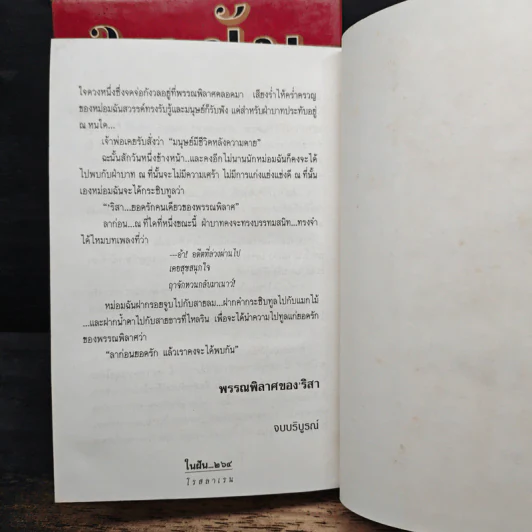 ในฝัน
ใจดวงหนึ่งซึ่งจดจ่อกังวลอยู่ที่พรรณพิลาศตลอดมา เสียงร่ำไห้คร่ำครวญ
ของหม่อมฉันสวรรค์ทรงรับรู้และมนุษย์ก็รับฟัง แต่สำหรับฝ่าบาทประทับอยู่
ณ หนใด...
เจ้าพ่อเคยรับสั่งว่า “มนุษย์มีชีวิตหลังความตาย”
ฉะนั้นสักวันหนึ่งข้างหน้า...และคงอีกไม่นานนักหม่อมฉันก็คงจะได้
ไปพบกับฝ่าบาท ณ ที่นั้นจะไม่มีความเศร้า ไม่มีการแก่งแย่งแข่งดี ณ ที่นั้น
เองหม่อมฉันจะได้กระซิบทูลว่า
“'ริสา...ยอดรักคนเดียวของพรรณพิลาศ”
ลาก่อน...ณ ที่ใดที่หนึ่งขณะนี้ ฝ่าบาทคงจะทรงบรรทมสนิท...ทรงจำ
ได้ไหมบทเพลงที่ว่า
—อ้า! อดีตที่ล่วงผ่านไป
เคยสุขสนุกใจ
ฤาจักหวนกลับมาเนาว์!
หม่อมฉันฝากรอยจูบไปกับสายลม...ฝากคำกระซิบทูลไปกับแมกไม้
...และฝากน้ำตาไปกับสายธารที่ไหลริน เพื่อจะได้นำความไปทูลแก่ยอดรัก
ของพรรณพิลาศว่า
“ลาก่อนยอดรัก แล้วเราคงจะได้พบกัน”
พรรณพิลาศของ'ริสา
จบบริบูรณ์
ในฝัน...๒๖๔
โรสลาเรน